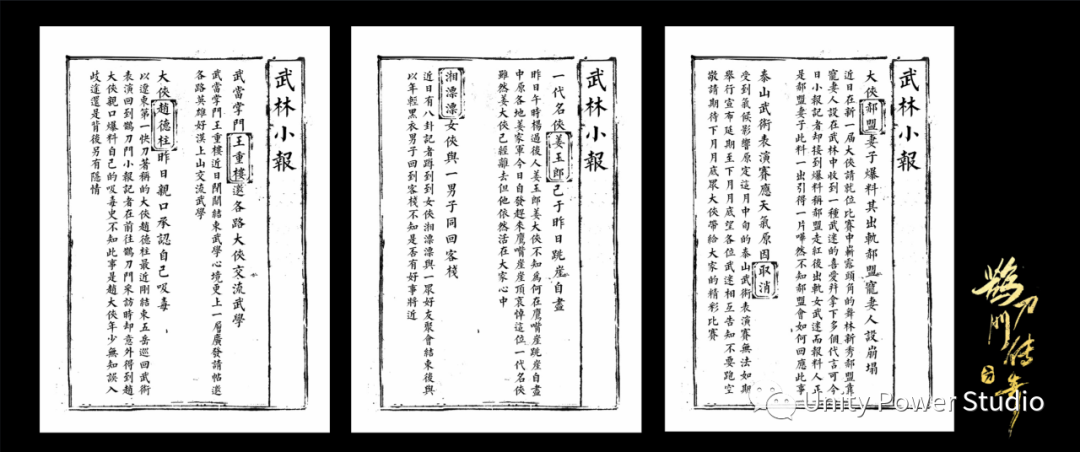 武林小報
武當掌門王重樓邀各路大俠交流武學
武當掌門王重樓近日閉關結束武學心境更上一層廣發請帖邀
各路英雄好漢上山交流武學
大俠趙德柱昨日親口承認自己吸毒
以遼東第一快刀著稱的大俠趙德柱最近剛結束五岳巡回武術
表演回到鵲刀門小報記者在前往鵲刀門來訪時却意外得到趙
大俠親口爆料自己的吸毒史不知此事是趙大俠年少無知誤入
歧途還是背後另有隱情
武林小報
一代名俠姜玉郎已于昨日跳崖自盡
昨日午時楊過後人姜玉郎姜大俠不知為何在鷹嘴崖跳崖自盡
中原各地姜家軍今日自發趕來鷹嘴崖崖頂哀悼這位一代名俠
雖然姜大俠已經離去但他依然活在大家心中
湘漂漂女俠與一男子同回客棧
近日有八卦記者蹲到到女俠湘漂漂與一眾好友聚會結束後與
以年輕黑衣男子回到客棧不知是否有好事將近
武林小報
大俠郝盟妻子爆料其出軌郝盟寵妻人設崩塌
近日在新一屆大俠請就位比賽中嶄露頭角的舞林新秀郝盟靠
寵妻人設在武林中收到一種武迷的喜愛并拿下多個代言可今
日小報記者却接到爆料稱郝盟走紅後出軌女武迷而報料人正
是郝盟妻子此料一出引得一片嘩然不知郝盟會如何回應此事
泰山武術表演賽應天氣原因取消
受到氣候影響原定這月中旬的泰山武術表演賽無法如期
舉行宣布延期至下月月底望各位武迷相互告知不要跑空
敬請期待下月月底眾大俠帶給大家的精彩比賽
鵲刀門傳奇
Unity Power Studio